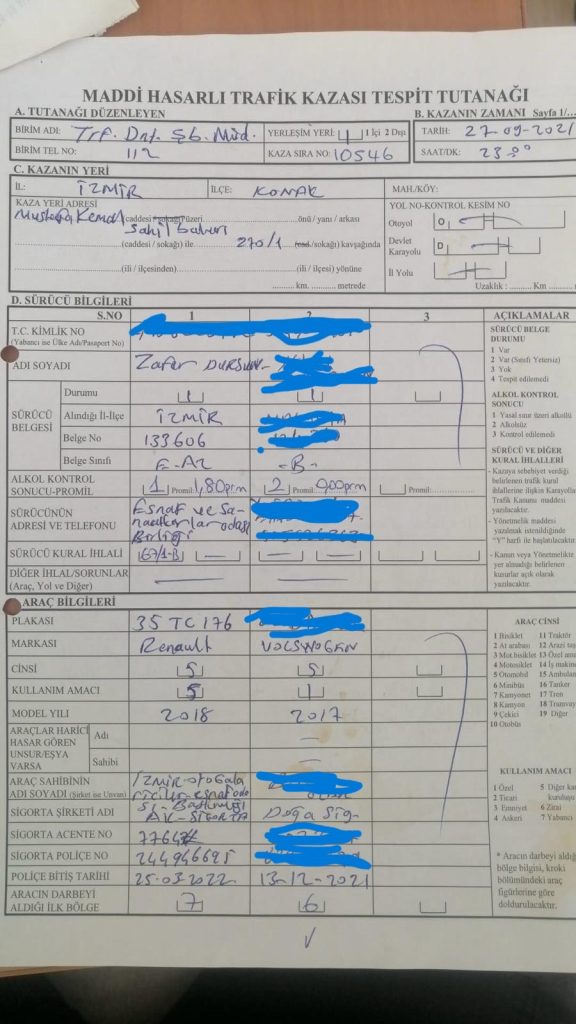 MADDİ HASARLI TRAFİK KAZASI TESPİT TUTANAĞI
A. TUTANAĞI DÜZENLEYEN
B. KAZANIN ZAMANI Sayfa 1/...
BİRİM ADI: Trf. Dnt. Şb. Müd.
YERLEŞİM YERİ: 1 1 İçi 2 Dışı
TARİH: 27-09-2021
BİRİM TEL NO: 112
KAZA SIRA NO: 10546
SAAT/DK: 23
C. KAZANIN YERİ
İL: İZMİR
İLÇE: KONAK
MAH/KÖY:
KAZA YERİ ADRESİ
YOL NO-KONTROL KESİM NO
Mustafa Kemal caddesi/sokağı üzeri önü / yanı / arkası
Otoyol O
Sahil bulvarı
(caddesi / sokağı) ile 270/1 (cad/sokağı) kavşağında
Devlet Karayolu D
(ili / ilçesinden) (ili / ilçesi) yönüne
İl Yolu
km. metrede
Uzaklık : Km
D. SÜRÜCÜ BİLGİLERİ
S.NO 1 2 3
AÇIKLAMALAR
T.C. KİMLİK NO
(Yabancı ise Ülke Adı/Pasaport No)
SÜRÜCÜ BELGE DURUMU
1 Var
2 Var (Sınıfı Yetersiz)
3 Yok
4 Tespit edilemedi
ADI SOYADI Zafer DURSUN
SÜRÜCÜ BELGESİ
Durumu 1 1
Alındığı İl-İlçe İZMİR
Belge No 133606
Belge Sınıfı E-A2 -B-
ALKOL KONTROL SONUCU
1 Yasal sınır üzeri alkollü
2 Alkolsüz
3 Kontrol edilemedi
ALKOL KONTROL SONUCU-PROMİL 1 Promil: 1,80prm 2 Promil: 0,00prm Promil:
SÜRÜCÜ VE DİĞER KURAL İHLALLERİ
- Kazaya sebebiyet verdiği
belirlenen trafik kural
ihlallerine ilişkin Karayolları
Trafik Kanunu maddesi
yazılacaktır.
- Yönetmelik maddesi
yazılmak istenildiğinde
"Y" harfi ile başlatılacaktır.
- Kanun veya Yönetmelikte
yer almadığı belirlenen
kusurlar açık olarak
yazılacaktır.
SÜRÜCÜNÜN ADRESİ VE TELEFONU Esnaf ve Sanatkarlar odası Birliği
SÜRÜCÜ KURAL İHLALİ 67/1-B
DİĞER İHLAL/SORUNLAR
(Araç, Yol ve Diğer)
ARAÇ BİLGİLERİ
PLAKASI 35 TC 176
MARKASI Renault VOLSWOGEN
CİNSİ 5 5
KULLANIM AMACI 5 1
MODEL YILI 2018 2017
ARAÇLAR HARİCİ HASAR GÖREN UNSUR/EŞYA VARSA
Adı
Sahibi
ARAÇ SAHİBİNİN ADI SOYADI (Şirket ise Unvan) İZMİR
SİGORTA ŞİRKETİ ADI AK-SİGORTA Doğa Sig-
SİGORTA ACENTE NO
SİGORTA POLİÇE NO 244946695
POLİÇE BİTİŞ TARİHİ 25.03.2022 13-12-2021
ARACIN DARBEYİ ALDIĞI İLK BÖLGE 7 6
ARAÇ CİNSİ
1 Bisiklet 11 Traktör
2 At arabası 12 Arazi taş
3 Mot.bisiklet 13 Özel ama
4 Motosiklet 14 İş makine
5 Otomobil 15 Ambulan
6 Minibüs 16 Tanker
7 Kamyonet 17 Tren
8 Kamyon 18 Tramvay
9 Çekici 19 Diğer
10 Otobüs
KULLANIM AMACI
1 Özel 5 Diğer ka
2 Ticari kurum
3 Emniyet 6 Zirai
4 Askeri 7 Yabancı
* Aracın darbeyi aldığı
bölge bilgisi, kroki
bölümündeki araç
figürlerine göre
doldurulacaktır.